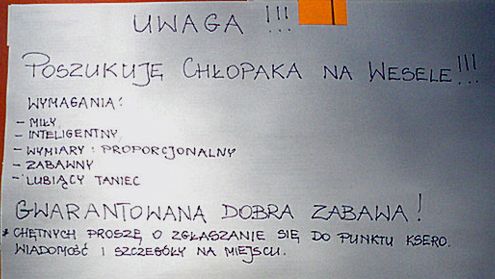 UWAGA !!!
POSZUKUJĘ CHŁOPAKA NA WESELE!!!
WYMAGANIA:
- MIŁY
- INTELIGENTNY
- WYMIARY : PROPORCJONALNY
- ZABAWNY
- LUBIĄCY TANIEC
GWARANTOWANA DOBRA ZABAWA!
* CHĘTNYCH PROSZĘ O ZGŁASZANIE SIĘ DO PUNKTU KSERO.
WIADOMOŚĆ I SZCZEGÓŁY NA MIEJSCU.